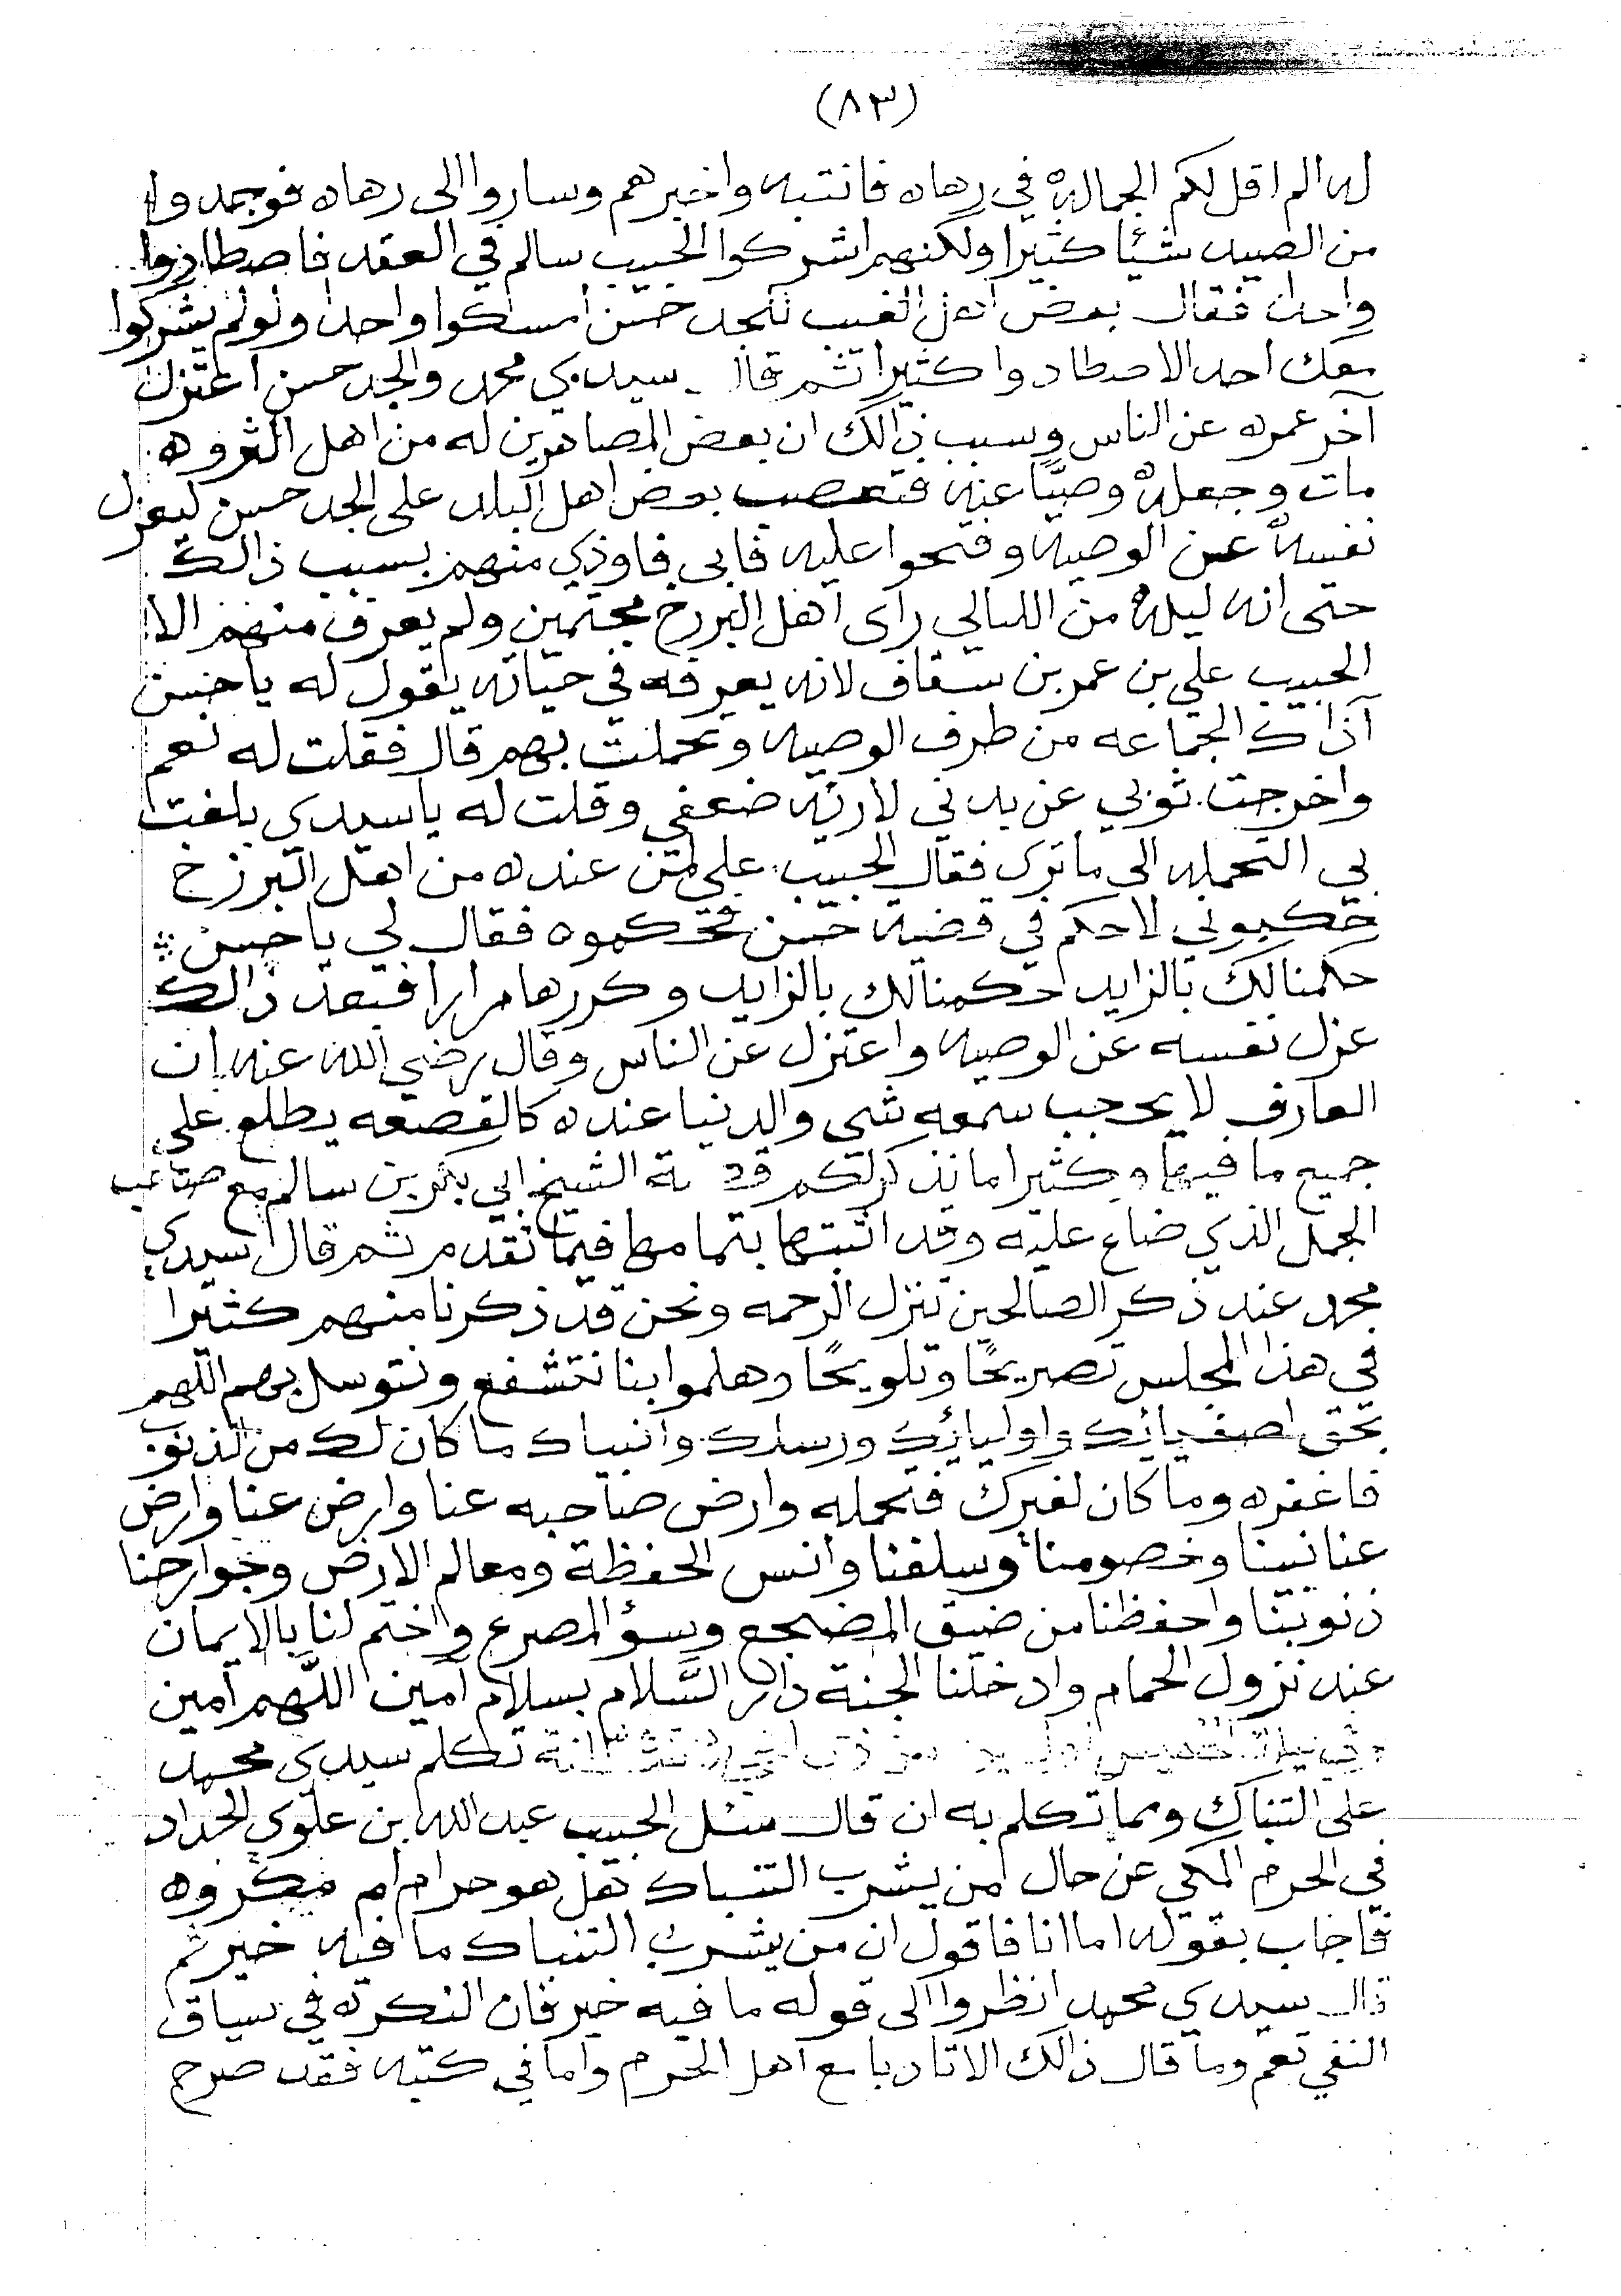 (٨٣)
له الم اقل لكم الجماله في رهاه فانتبه واخبرهم وساروا الى رهاه فوجدوا
من الصيد شئيا كثيرا ولكنهم اشركوا الحبيب سالم في العقد فاصطادوا
واحدا فقال بعض اهل الغيب للجد حسن امسكوا واحدا ولو لم يشركوا
معك احد لاصطادوا كثيرا ثم قال سيدي محمد والجد حسن اعتزل
آخر عمره عن الناس وسبب ذالك ان بعض المصاهرين له من اهل الثروه
مات وجعله وصيًا عنه فتعصب بعض اهل البلد على الجد حسن ليعزل
نفسه عن الوصيه وفتحوا عليه فابى فاوذي منهم بسبب ذالك
حتى انه ليله من الليالي رأى اهل البرزخ مجتمعين ولم يعرف منهم الا
الحبيب علي بن عمر بن سقاف لانه يعرفه في حياته يقول له يا حسن
آذاك الجماعه من طرف الوصيه وتحملت بهم قال فقلت له نعم
واخرجت ثوبي عن بدني لاريه ضعفي وقلت له يا سيدي بلغت
بي التحمله الى ما ترى فقال الحبيب علي لمن عنده من اهل البرزخ
حكموني لاحكم في قضيه حسن فحكموه فقال لي يا حسن
حكمنالك بالزايد احكمنالك بالزايد وكررها مرارا فبعد ذالك
عزل نفسه عن الوصيه واعتزل عن الناس وقال رضي الله عنه ان
العارف لا يحجب سمعه شي والدنيا عنده كالقصعه يطلع على
جميع ما فيها وكثيرا ما نذكر لكم قصة الشيخ ابي بكر بن سالم مع صاحب
الجمل الذي ضاع عليه وقد اثبتها بتمامها فيما تقدم ثم قال سيدي
محمد عند ذكر الصالحين تنزل الرحمه ونحن قد ذكرنا منهم كثيرا
في هذا المجلس تصريحًا وتلويحًا وهلموا بنا نتشفع ونتوسل بهم اللهم
بحق اصفيائك واوليائك ورسلك وانبياك ما كان لك من الذنوب
فاغفره وما كان لغيرك فتحمله وارض صاحبه عنا وارض عنا وارض
عنا نبينا وخصومنا وسلفنا وانس الحفظة ومعالم الارض وجوارحنا
ذنوبنا واحفظنا من ضيق المضجع وسؤ المصرع واختم لنا بالايمان
عند نزول الحمام وادخلنا الجنة دار السَّلام بسلام آمين اللّهم آمين
تكلم سيدي محمد
على التنباك ومما تكلم به ان قال سئل الحبيب عبد الله بن علوي الحداد
في الحرم المكي عن حال من يشرب التنباك هل هو حرام ام مكروه
فاجاب بقوله اما انا فاقول ان من يشرب التنباك ما فيه خير ثم
قال سيدي محمد انظروا الى قوله ما فيه خير فان النكره في سياق
النفي تعم وما قال ذالك الا تادبا مع اهل الحرم واما في كتبه فقد صرح